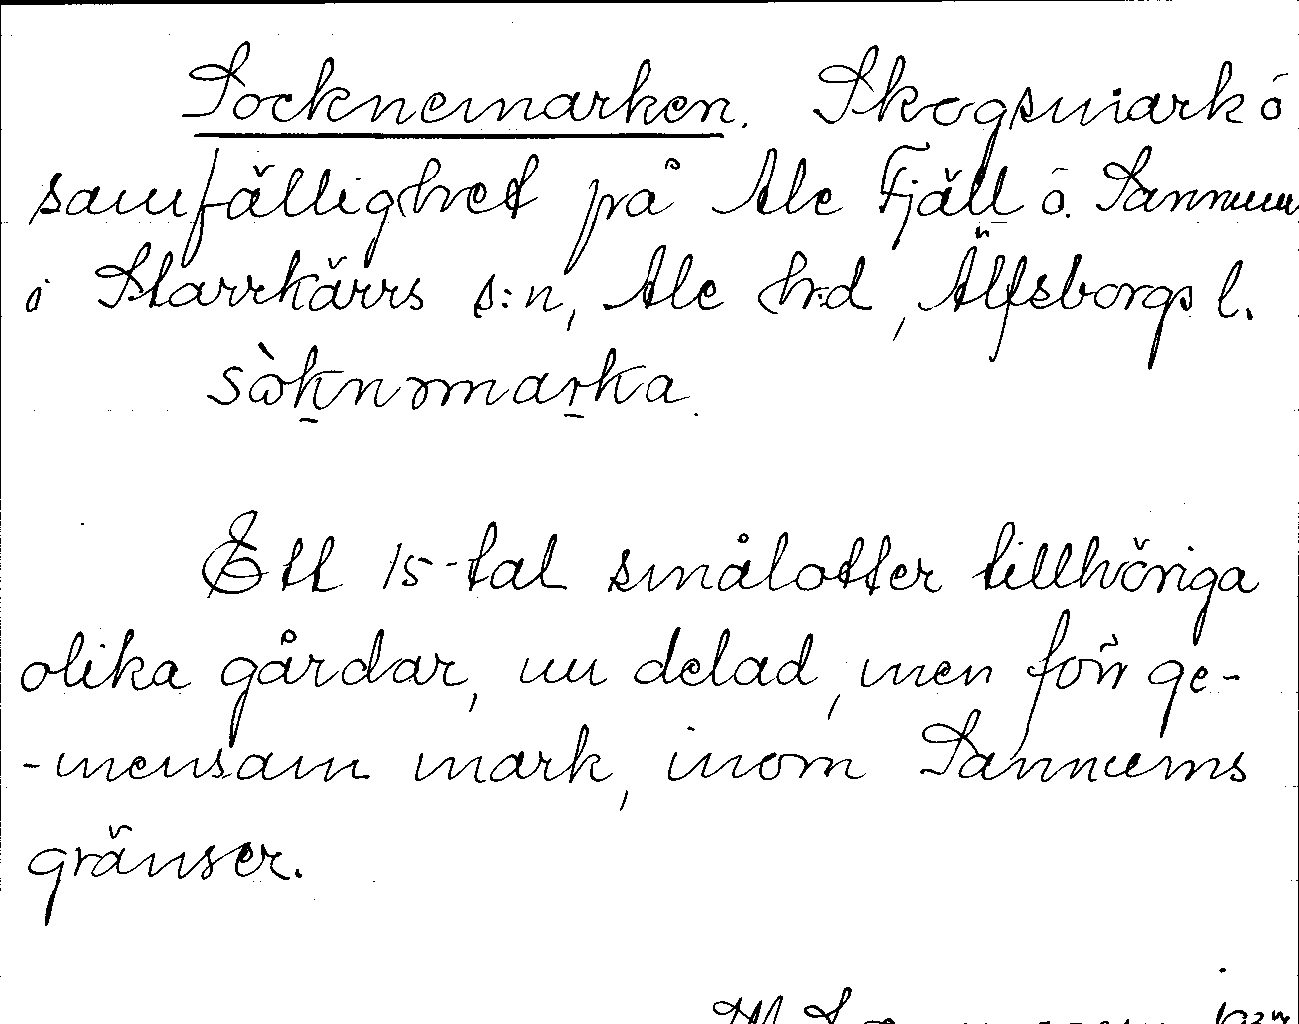 Socknemarken. Skogsmark o
samfällighet på Ale Fjäll ö. Sannum
i Starrkärrs s:n, Ale h:d, Älfsborgs l.
sòknomarka.
Ett 15-tal smålotter tillhöriga
olika gårdar, nu delad, men förr ge-
-mensam mark, inom Sannums
gränser.